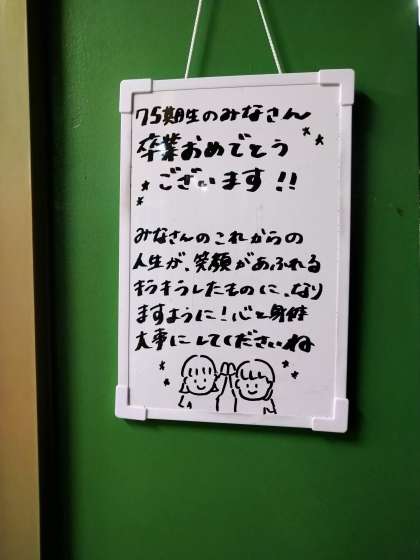 75期生のみなさん
卒業おめでとう
ございます!!
みなさんのこれからの
人生が、笑顔があふれる
キラキラしたものに、なり
ますように!心と身体
大事にしてくださいね